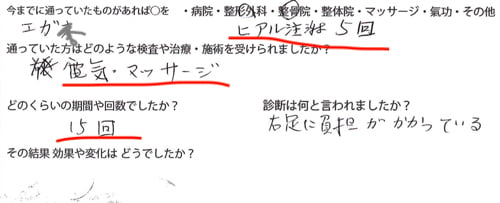 今までに通っていたものがあれば○を ・病院・整形外科・整骨院・整体院・マッサージ・氣功・その他
ヒアル注射 5回
通っていた方はどのような検査や治療・施術を受けられましたか？
電気・マッサージ
どのくらいの期間や回数でしたか？ 診断は何と言われましたか？
15回 右足に負担がかかっている
その結果 効果や変化は どうでしたか？